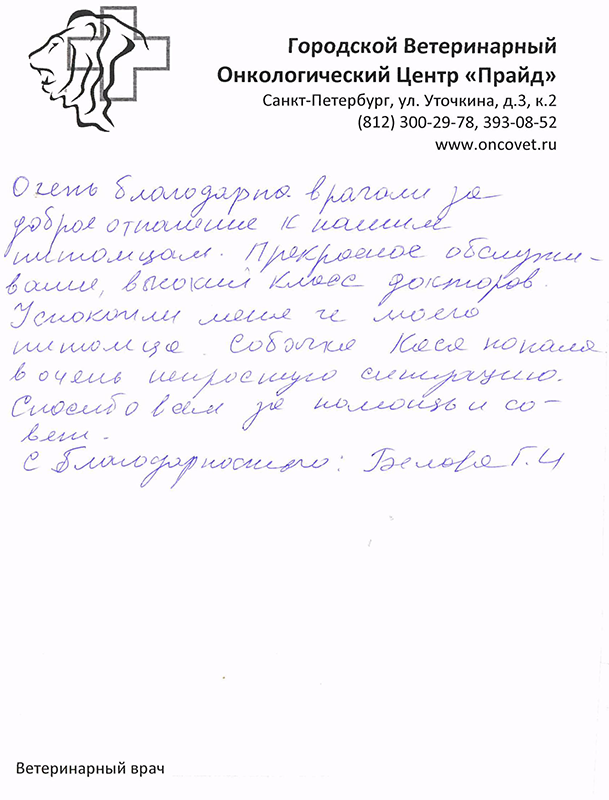 Городской Ветеринарный
Онкологический Центр «Прайд»
Санкт-Петербург, ул. Уточкина, д.3, к.2
(812) 300-29-78, 393-08-52
www.oncovet.ru
Очень благодарна врачам за
доброе отношение к нашим
питомцам. Прекрасное обслужи-
вание, высокий класс докторов.
Успокоили меня и моего
питомца. Собачка Кася попала
в очень непростую ситуацию.
Спасибо вам за помощь и со-
вет.
С Благодарностью: Белова Г.И
Ветеринарный врач